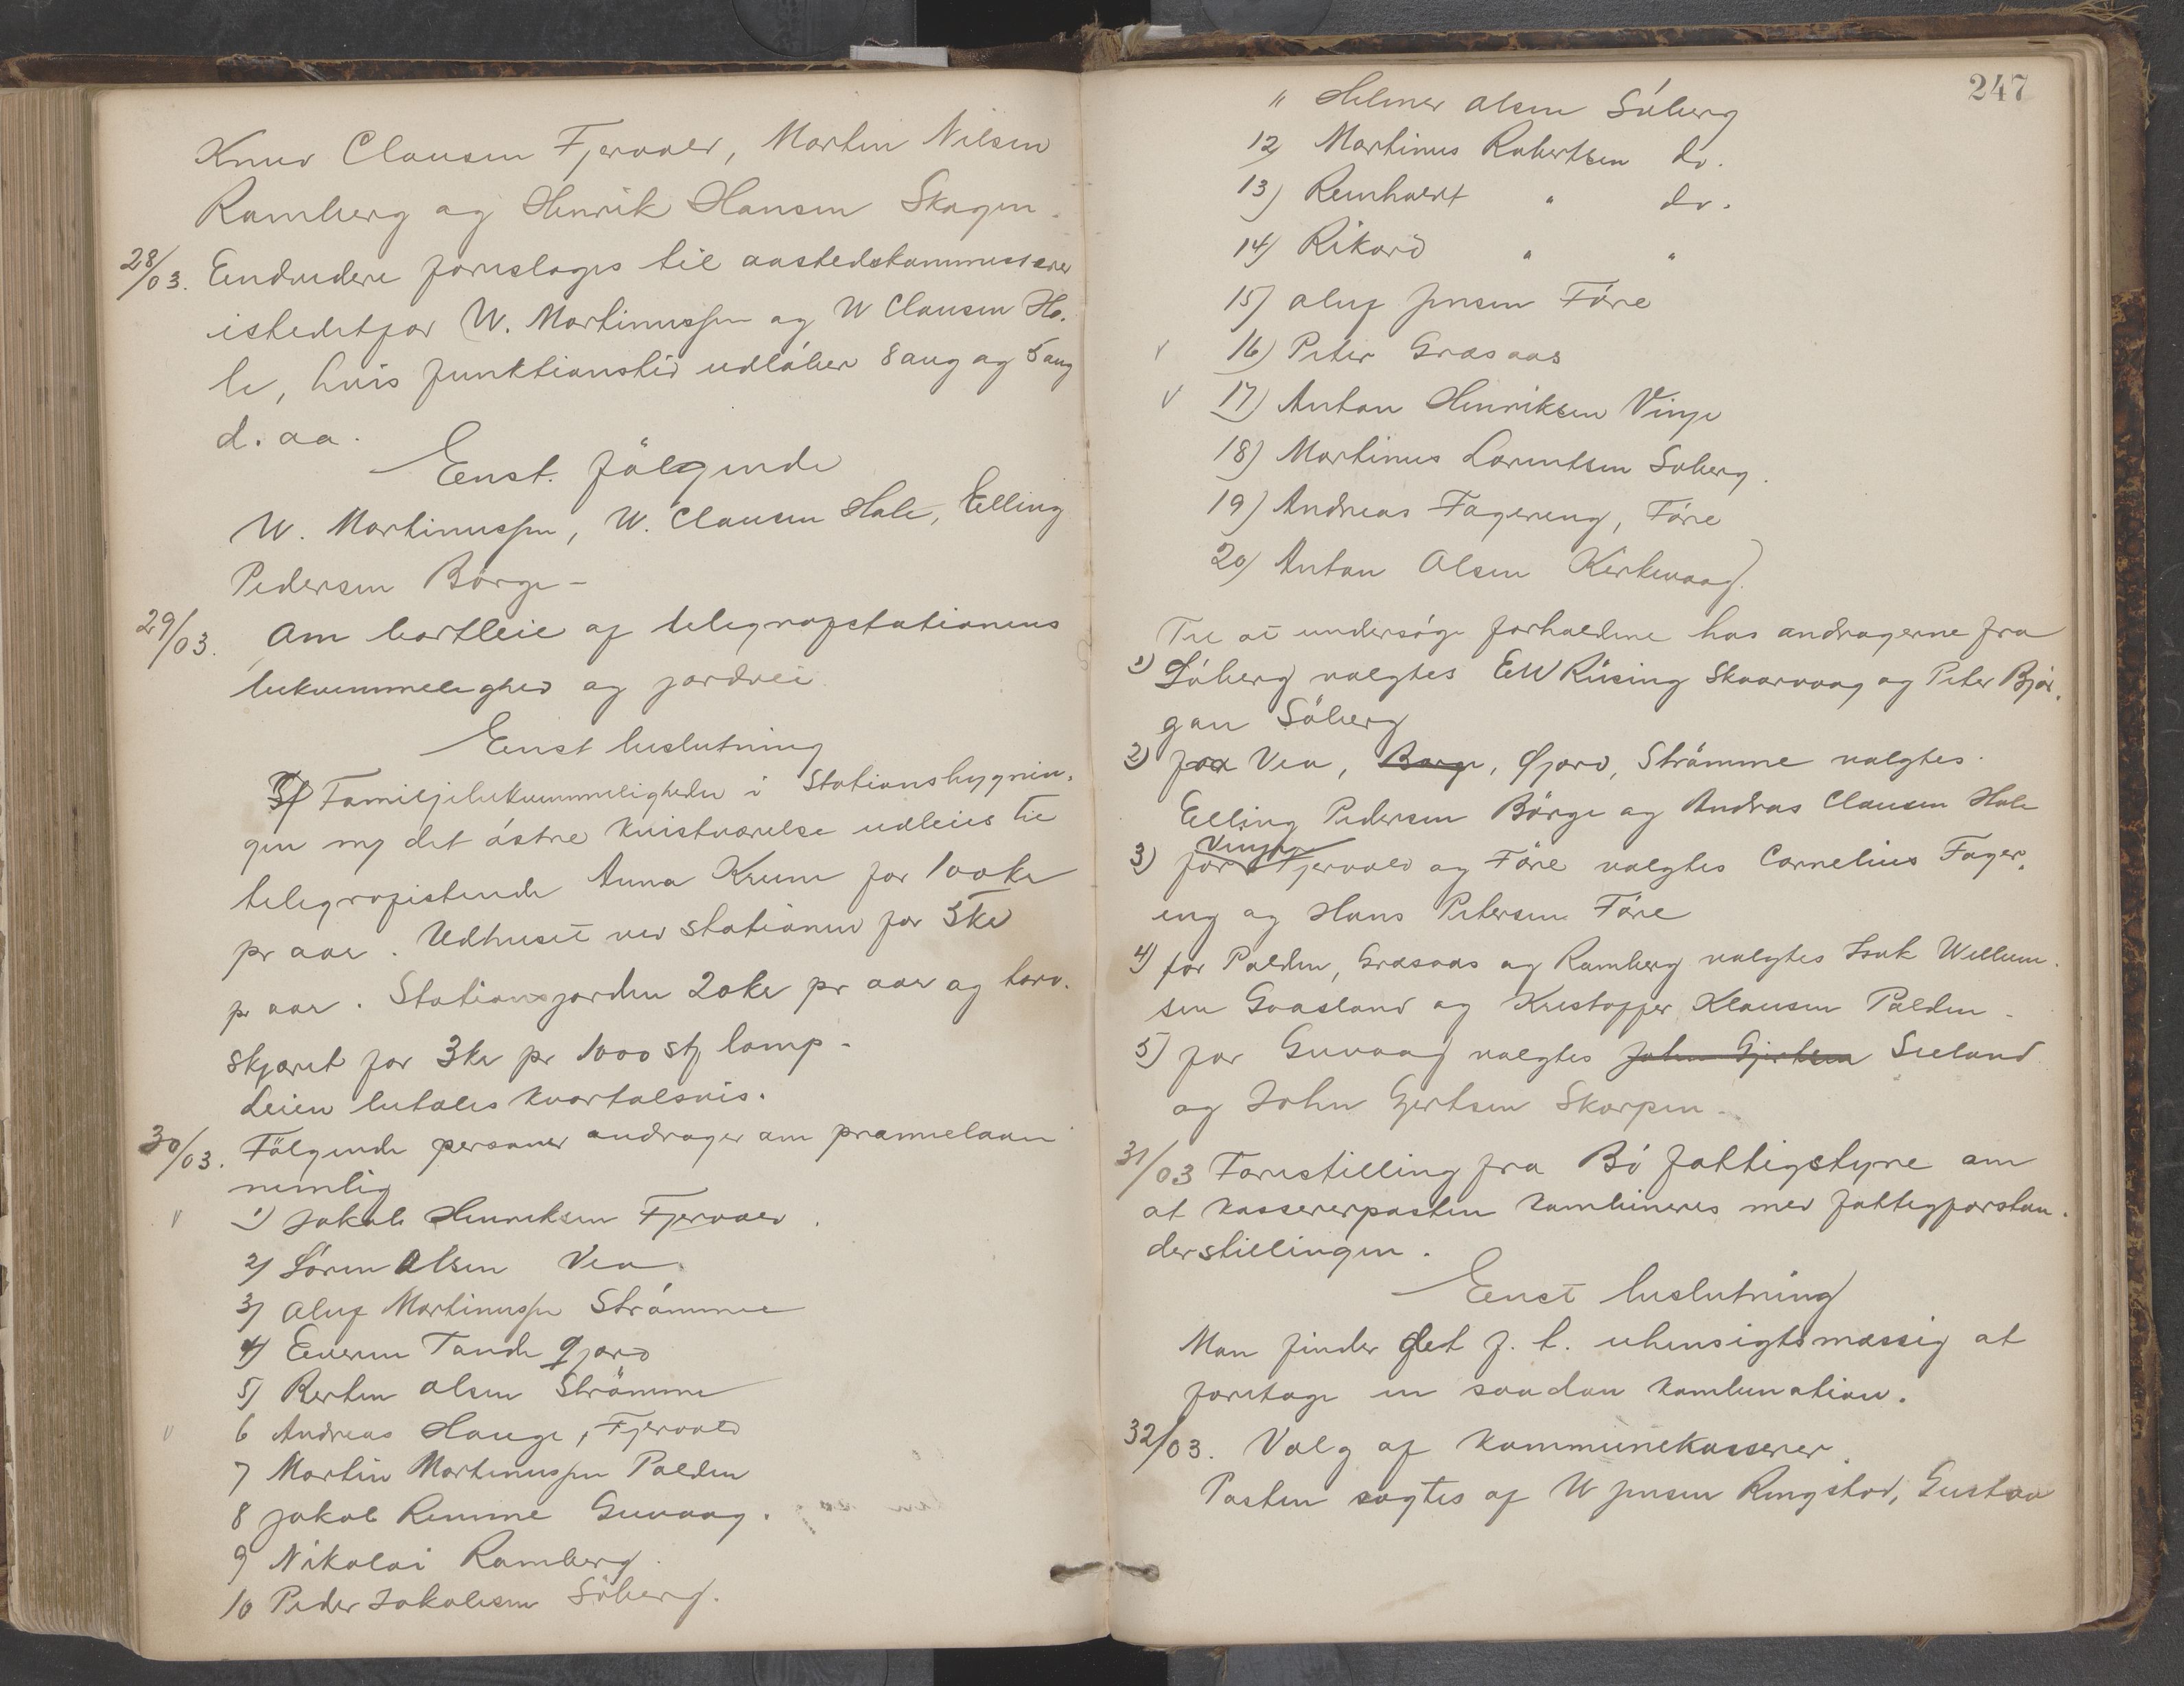 Knud Clausen Fjervold, Martin Nilsen
Ramberg og Henrik Hansen Skagen.
28/03. Endvidere foreslages til aastedskommissærer
istedetfor W. Martinussen og W Clausen Ho.
le, hvis funktionstid udløber 8 aug og 5 aug
d. aa.
Enst. følgende
W. Martinussen, W. Clausen Hole, Elling
Pedersen Börge –
29/03. Om bortleie af telegrafstationens
bekvemmelighed og jordvei
Enst beslutning
Familjebekvemmeligheden i Stationsbygnin.
gen m/ det östre kvistværelse udleies til
telegrafistinde Anna Krum for 100 kr
pr aar. Udhuset ved stationen for 5 kr
pr aar. Stationsjorden 20 kr pr aar og torv.
skjæret for 3 kr pr 1000 stk lomp.
Leien betales kvartalsvis.
30/03. Fölgende personer andrager om præmielaan
nemlig
v 1) Jakob Henriksen Fjervold.
2) Sören Olsen Vea.
3) Oluf Martinussen Strömme
4) Evenn Tande Qjord
5) Berten Olsen Strömme
v 6 Andreas Hauge, Fjervold
7 Martin Martinussen Palden
8 Jakob Remme Guvaag.
9 Nikolai Ramberg.
10 Peder Jakobsen Söberg.
247
" Helmer Olsen Söberg
12) Martinus Robertsen do.
13) Reinholdt " do.
14) Rikard " "
15) Oluf Jensen Före
v 16) Peter Græsaas
v 17) Anton Henriksen Vinje
18) Martinus Lorentsen Soberg.
19) Andreas Fagereng, Före
20) Anton Olsen Kirkevaag.
Til at undersöge forholdene hos andragerne fra
1) Söberg valgtes EW Rüsing Skaarvaag og Peter Bjør.
gan Söberg
2) fra Vea, Borge, Qjord, Strömme valgtes.
Elling Pedersen Börge og Andras Clausen Hole
Vinje
3) for Fjervold og Före valgtes Cornelius Fager.
eng og Hans Petersen Före
4) for Palden, Græsaas og Ramberg valgtes Isak Willum.
sen Gaasland og Kristoffer Klausen Palden.
5) for Guvaag valgtes John Gjertsen Seeland
og John Gjertsen Skarpen.
31/03 Forestilling fra Bö fattigstyre om
at kassererposten kombineres med fattigforstan.
derstillingen.
Enst beslutning
Man finder det f. t. uhensigtsmæssig at
foretage en saadan kombination.
32/03. Valg af kommunekasserer.
Posten søgtes af W Jensen Ringstad, Gustav